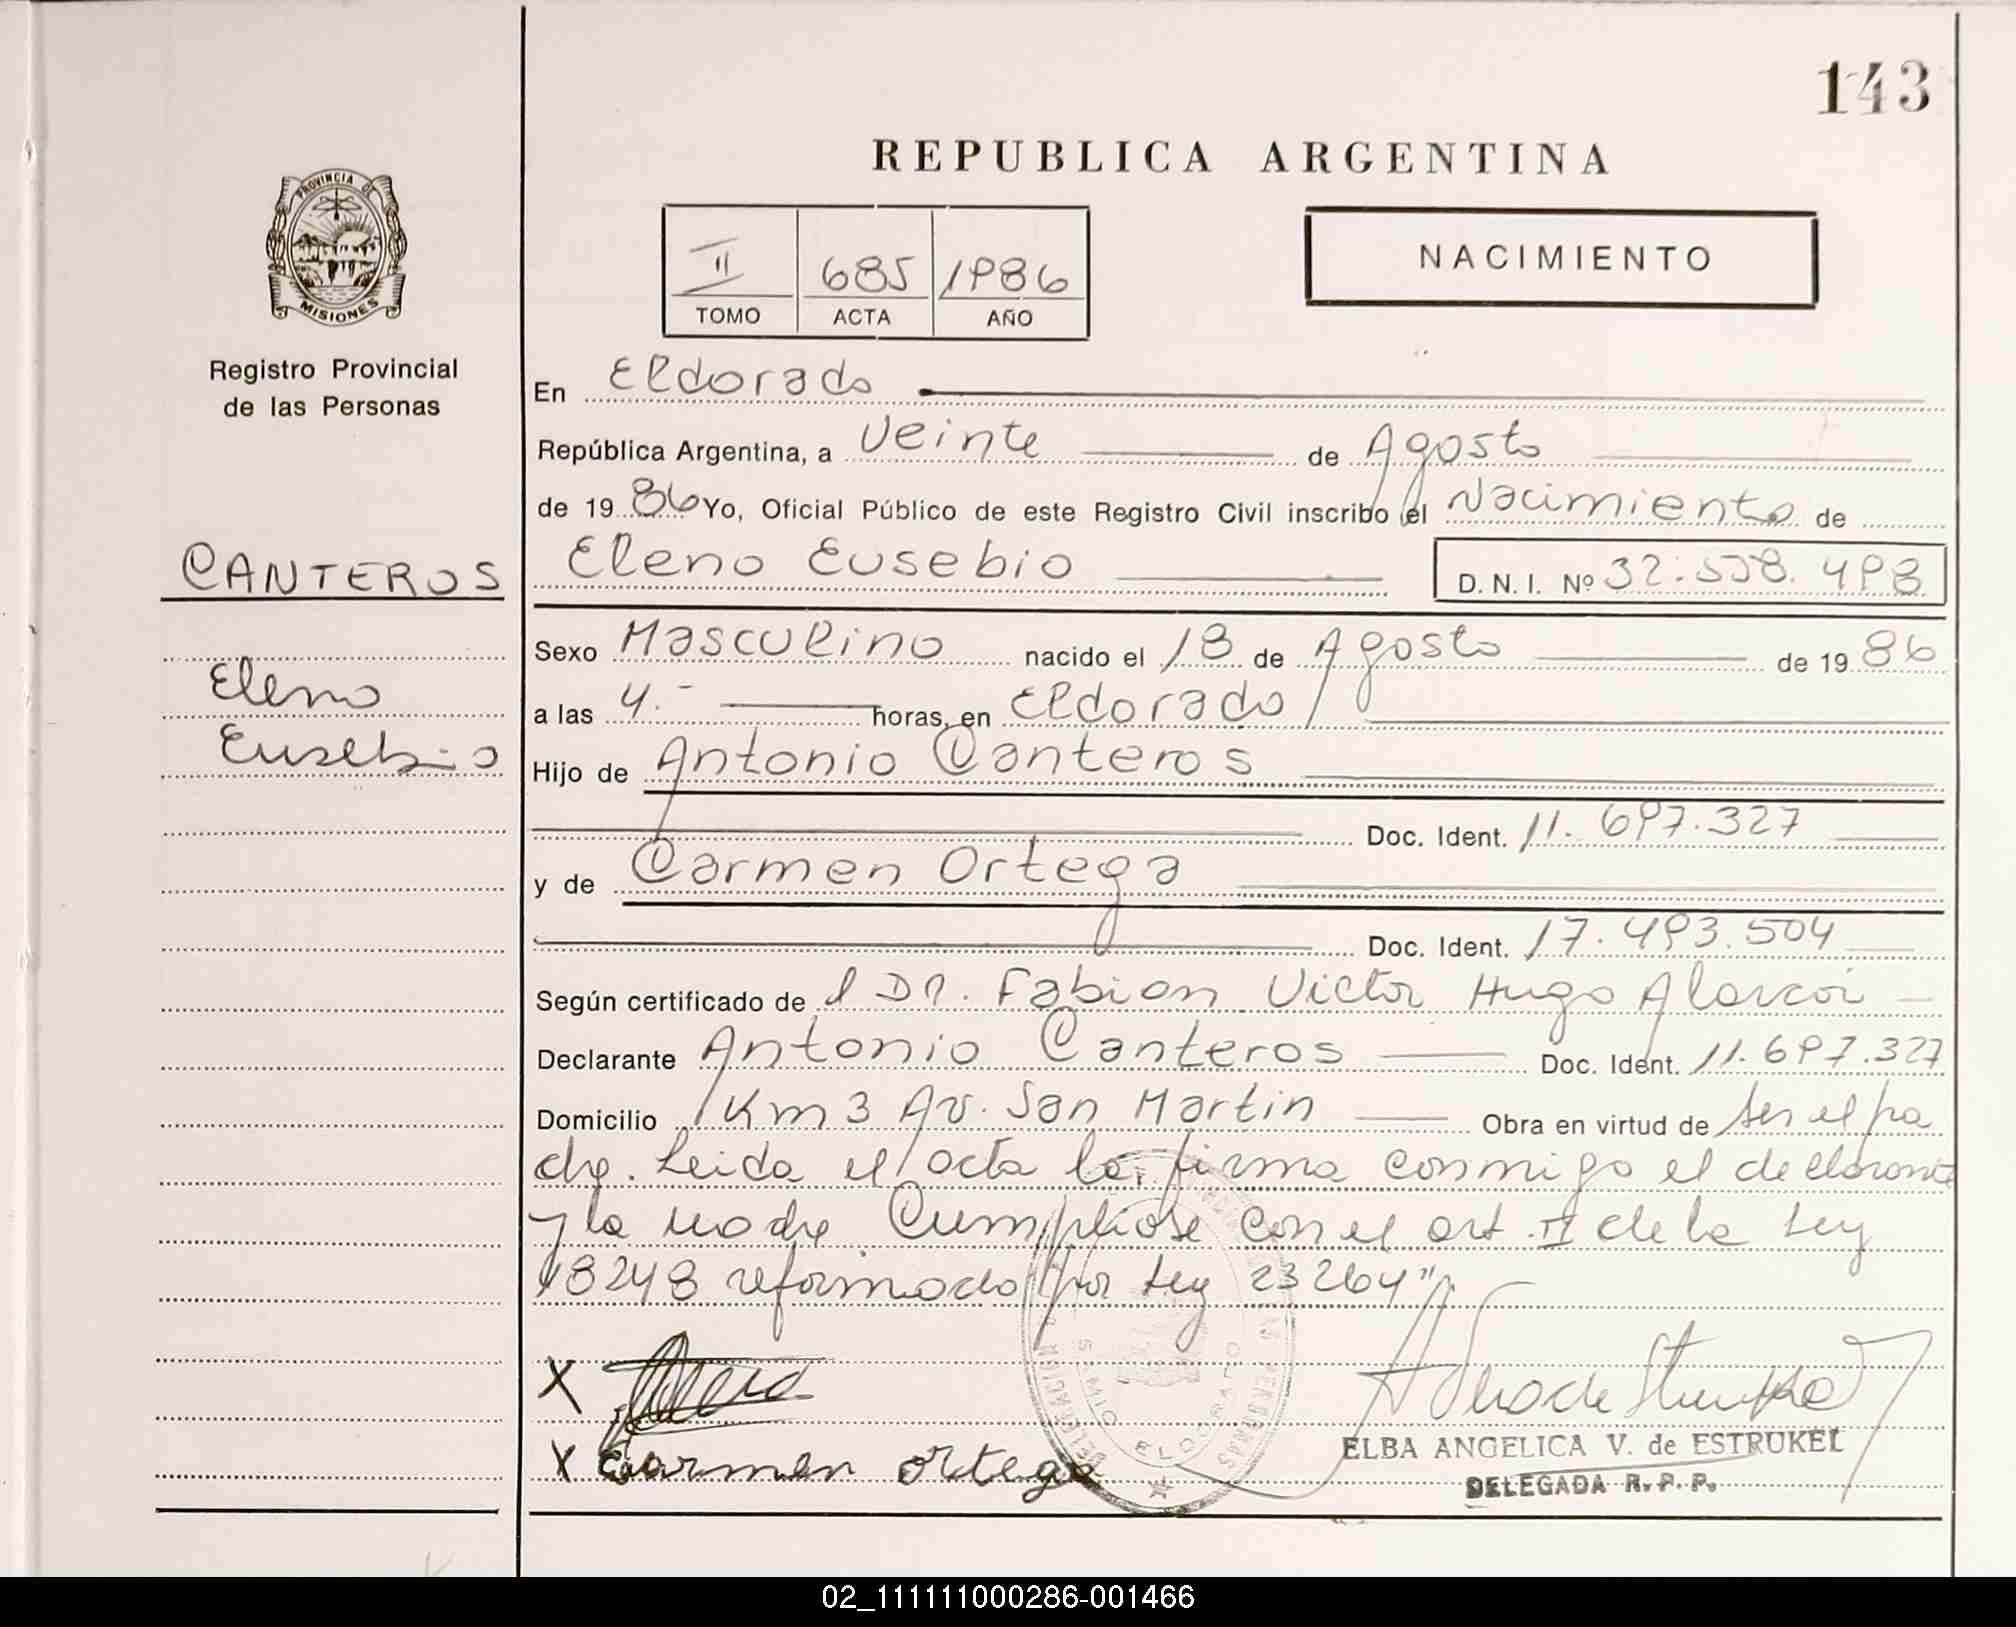 143
REPUBLICA ARGENTINA
PROVINCIA DE
MISIONES
Registro Provincial
de las Personas
II 685 1986
TOMO ACTA AÑO
NACIMIENTO
En Eldorado
República Argentina, a Veinte de Agosto
de 1986 Yo, Oficial Público de este Registro Civil inscribo el Nacimiento de
CANTEROS
Eleno Eusebio D. N. I. Nº 32.558.498
Eleno
Eusebio
Sexo Masculino nacido el 18 de Agosto de 1986
a las 4.- horas, en Eldorado
Hijo de Antonio Canteros
Doc. Ident. 11.697.327
y de Carmen Ortega
Doc. Ident. 17.493.504
Según certificado de l Dr. Fabian Victor Hugo Alarcón
Declarante Antonio Canteros Doc. Ident. 11.697.327
Domicilio Km 3 Av. San Martin Obra en virtud de ser el pa
dre. Leida el acta la firma conmigo el declarante
y la madre. Cumpliose con el art. II de la Ley
18248 reformado por Ley 23264"
X
X Carmen Ortega
ELDORADO
ELBA ANGELICA V. de ESTRUKEL
DELEGADA R. P. P.
02_111111000286-001466